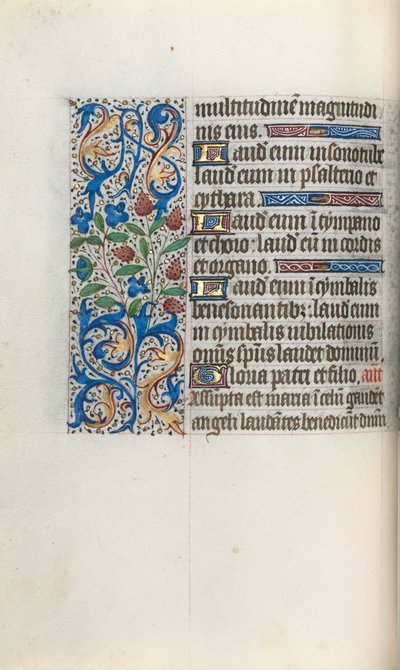 multitudinē magnitudi
nis eius.
Laud eum in sono tube
laud eum in psalterio et
cythara.
Laud eum ī tympano
et choro: laud eū in cordis
et organo.
Laud eum ī cymbalis
benesonantibz: laud eum
in cymbalis iubilationis
omīs spūs laudet dominū.
Gloria patri et filio. ant
Assūpta est maria ī celū gaudēt
angeli laudātes benedicūt dnm̄